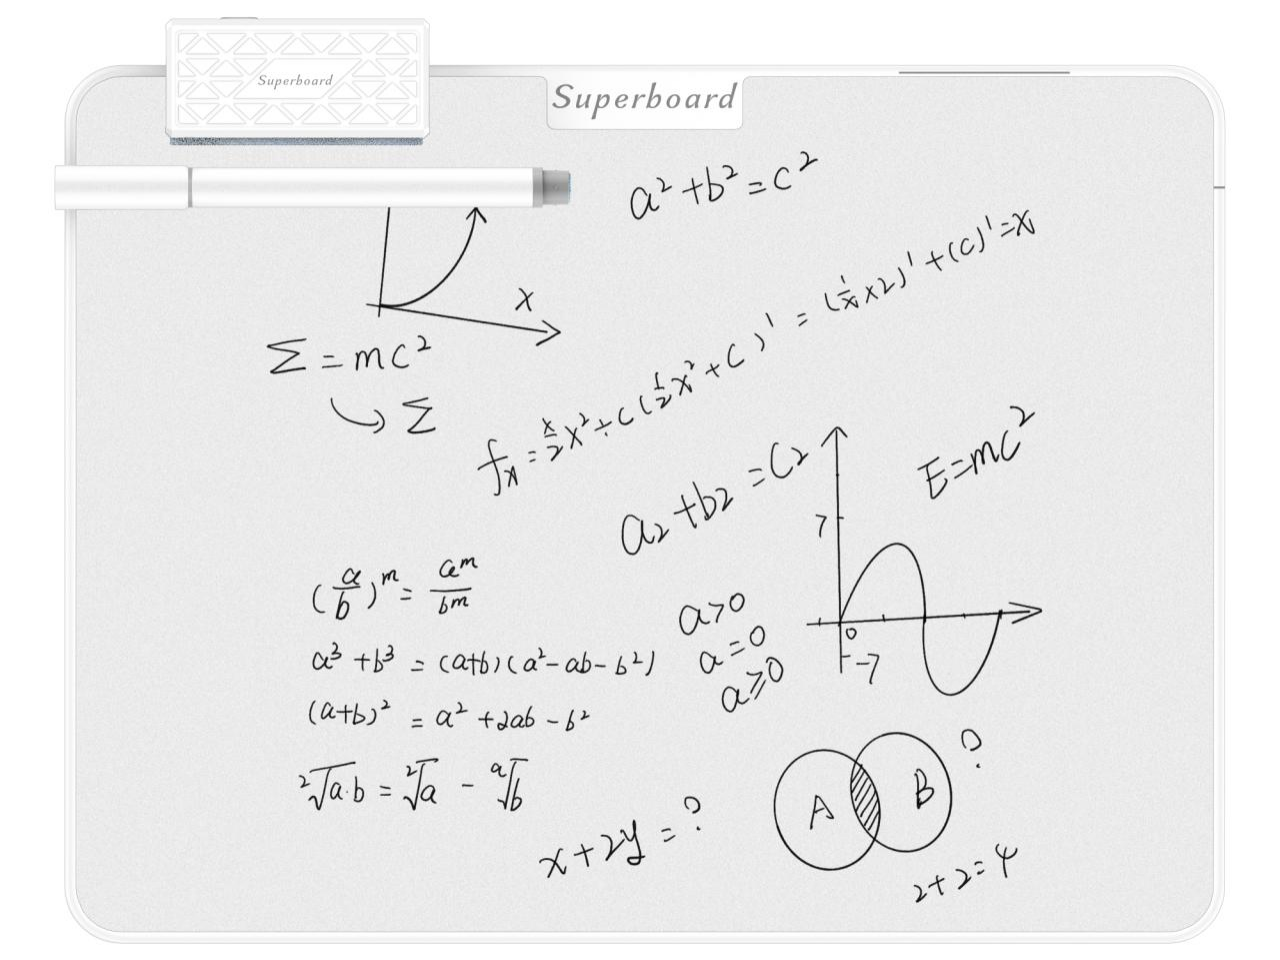 Superboard
Superboard
a² + b² = c²
x
Σ = mc²
Σ
fx = x/2 x² ÷ c (1/2 x² + C)' = (1/x × 2)' + (c)' = x
a₂ + b₂ = C₂
E = mc²
7
0
-7
(a/b)^m = a^m/b^m
a³ + b³ = (a+b)(a² - ab - b²)
(a+b)² = a² + 2ab - b²
²√a·b = ²√a - ᵃ√b
a>0
a=0
a⩾0
x + 2y = ?
A B ?
2+2=4